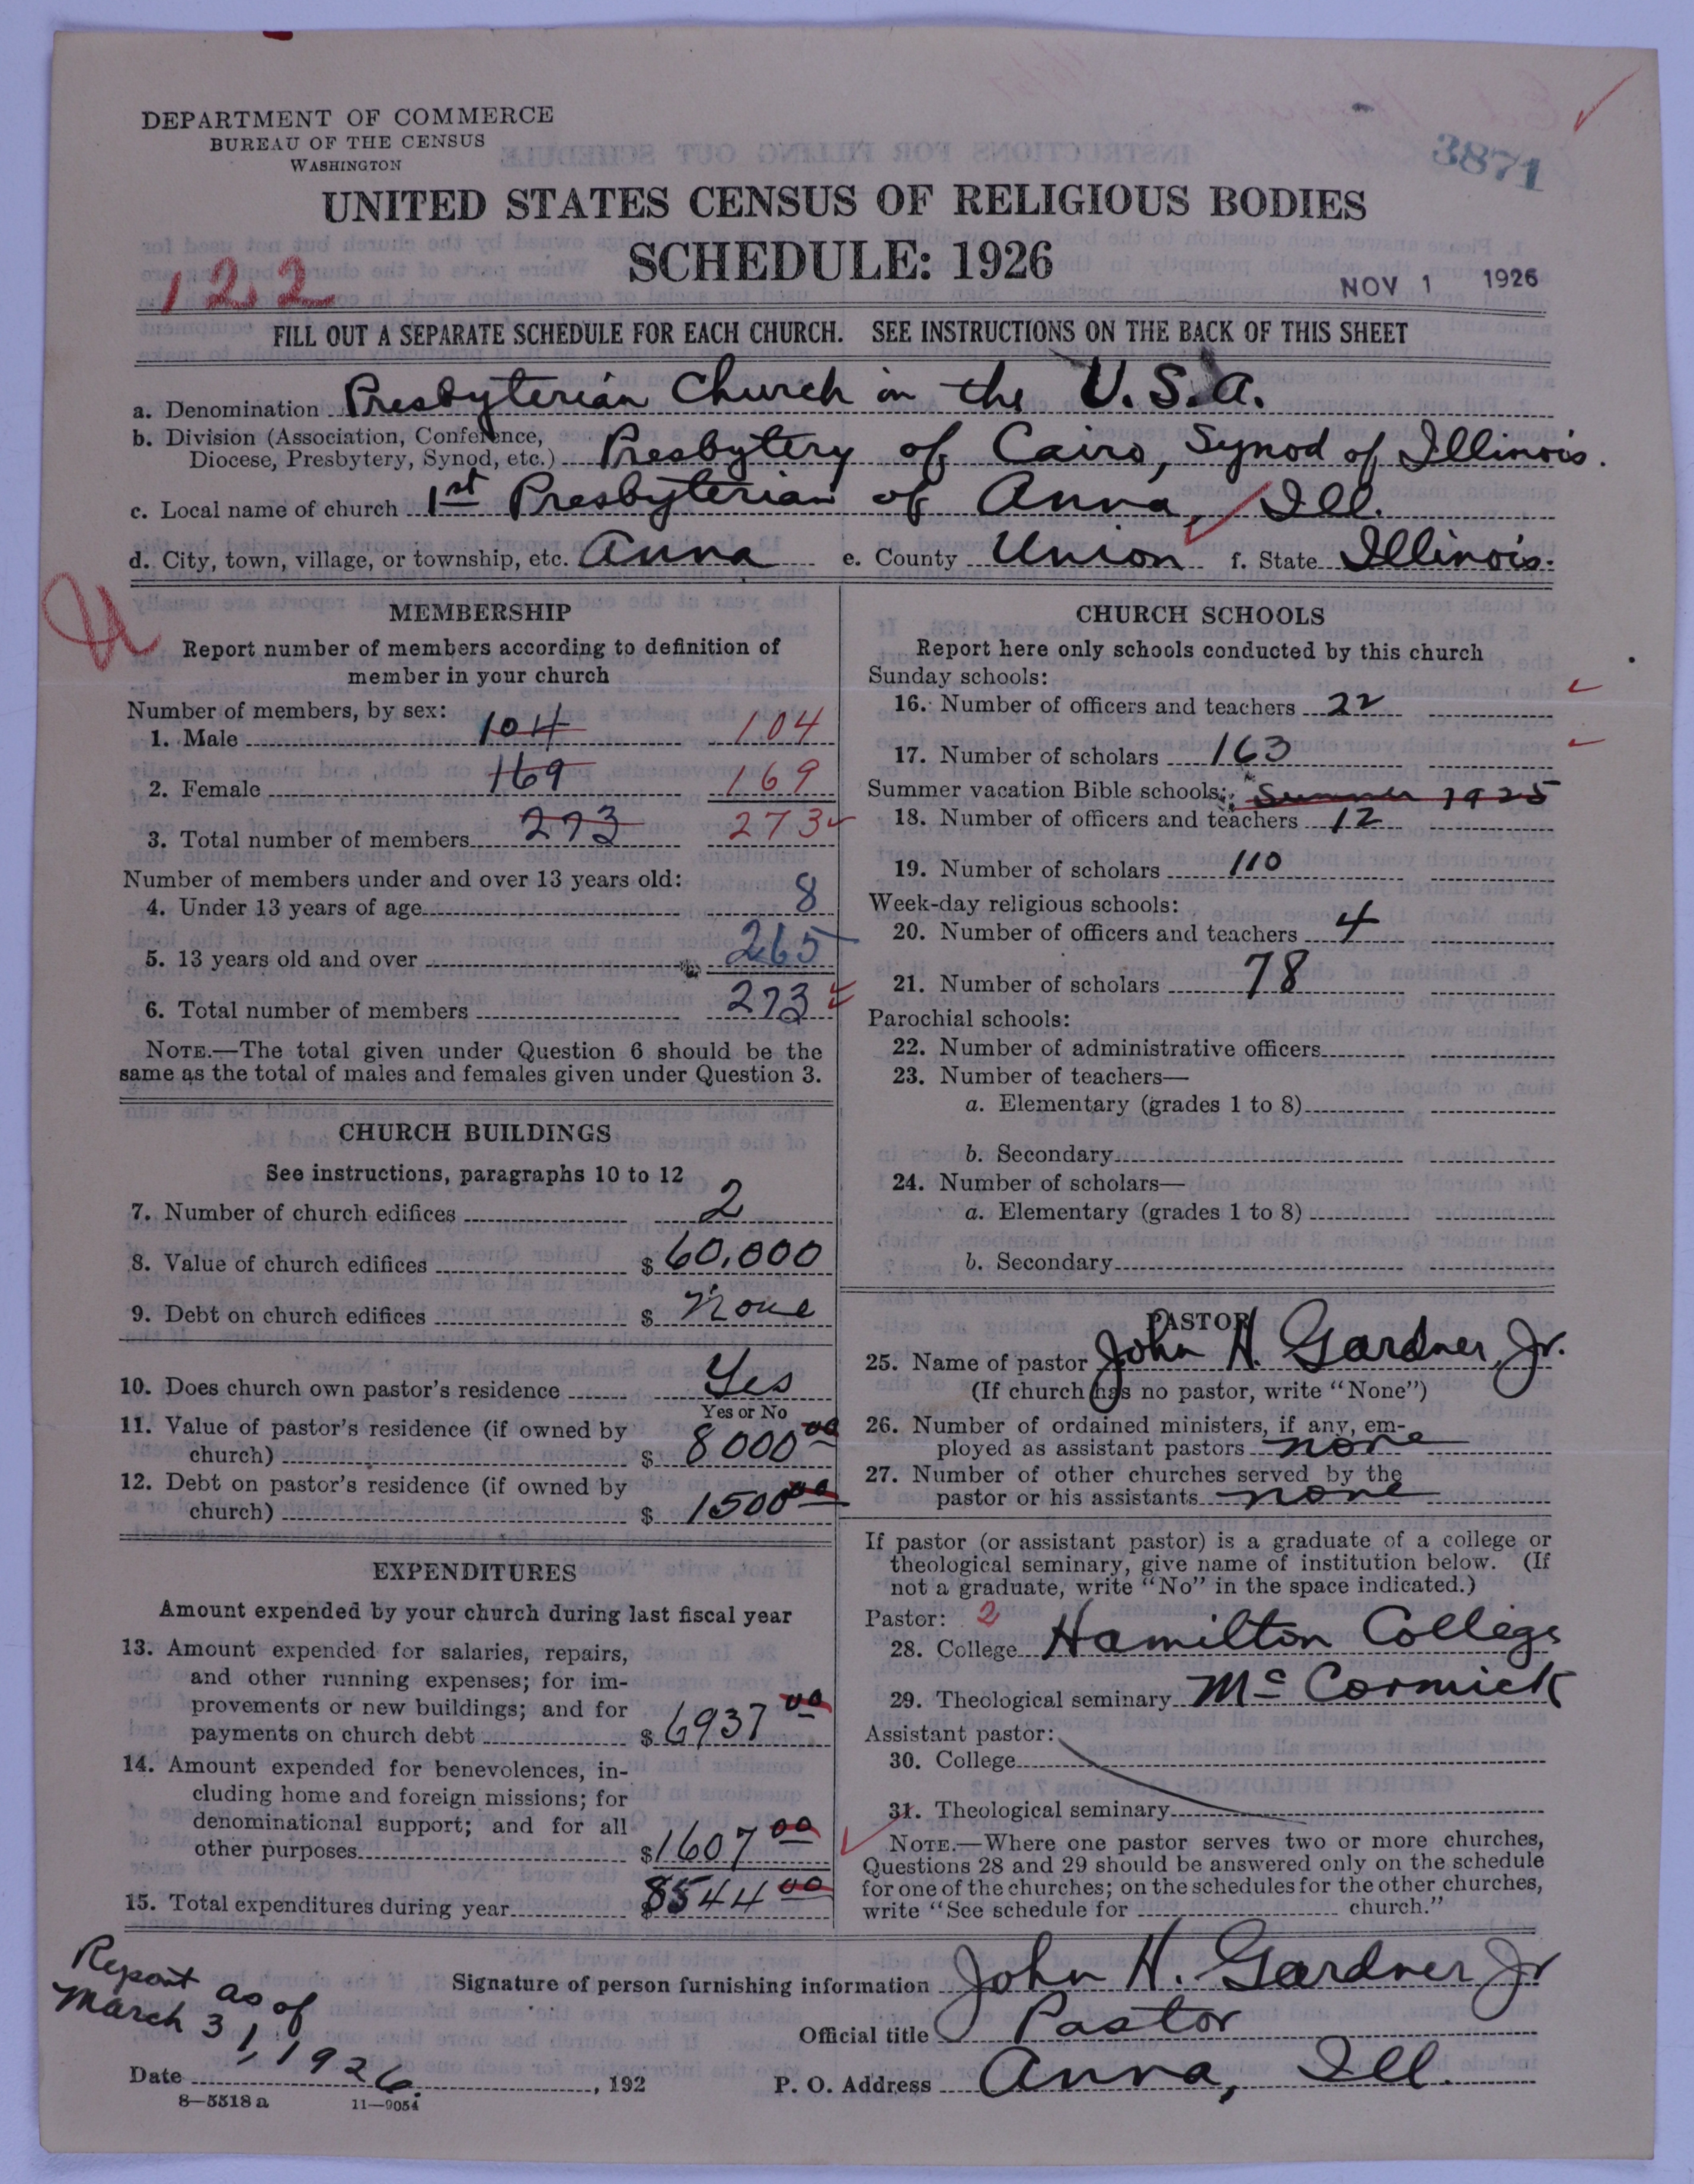 DEPARTMENT OF COMMERCE
BUREAU OF THE CENSUS
WASHINGTON
3871
UNITED STATES CENSUS OF RELIGIOUS BODIES
SCHEDULE: 1926
122
NOV 1 1926
FILL OUT A SEPARATE SCHEDULE FOR EACH CHURCH. SEE INSTRUCTIONS ON THE BACK OF THIS SHEET
a. Denomination Presbyterian Church in the U.S.A.
b. Division (Association, Conference,
Diocese, Presbytery, Synod, etc.) Presbytery of Cairo, Synod of Illinois.
c. Local name of church 1st Presbyterian of Anna, Ill.
d. City, town, village, or township, etc. Anna e. County Union f. State Illinois.
MEMBERSHIP
Report number of members according to definition of
member in your church
Number of members, by sex:
1. Male 104 104
2. Female 169 169
3. Total number of members 273 273
Number of members under and over 13 years old:
4. Under 13 years of age 8
5. 13 years old and over 265
6. Total number of members 273
NOTE.—The total given under Question 6 should be the
same as the total of males and females given under Question 3.
CHURCH BUILDINGS
See instructions, paragraphs 10 to 12
7. Number of church edifices 2
8. Value of church edifices $ 60,000
9. Debt on church edifices $ None
10. Does church own pastor's residence Yes
Yes or No
11. Value of pastor's residence (if owned by
church) $ 8000 00
12. Debt on pastor's residence (if owned by
church) $ 1500 00
EXPENDITURES
Amount expended by your church during last fiscal year
13. Amount expended for salaries, repairs,
and other running expenses; for im-
provements or new buildings; and for
payments on church debt $ 6937 00
14. Amount expended for benevolences, in-
cluding home and foreign missions; for
denominational support; and for all
other purposes $ 1607 00
15. Total expenditures during year $ 8544 00
CHURCH SCHOOLS
Report here only schools conducted by this church
Sunday schools:
16. Number of officers and teachers 22
17. Number of scholars 163
Summer vacation Bible schools: Summer 1925
18. Number of officers and teachers 12
19. Number of scholars 110
Week-day religious schools:
20. Number of officers and teachers 4
21. Number of scholars 78
Parochial schools:
22. Number of administrative officers
23. Number of teachers—
a. Elementary (grades 1 to 8)
b. Secondary
24. Number of scholars—
a. Elementary (grades 1 to 8)
b. Secondary
PASTOR
25. Name of pastor John H. Gardner, Jr.
(If church has no pastor, write "None")
26. Number of ordained ministers, if any, em-
ployed as assistant pastors none
27. Number of other churches served by the
pastor or his assistants none
If pastor (or assistant pastor) is a graduate of a college or
theological seminary, give name of institution below. (If
not a graduate, write "No" in the space indicated.)
Pastor: 2
28. College Hamilton College
29. Theological seminary McCormick
Assistant pastor:
30. College
31. Theological seminary
NOTE.—Where one pastor serves two or more churches,
Questions 28 and 29 should be answered only on the schedule
for one of the churches; on the schedules for the other churches,
write "See schedule for church."
Report as of
March 31, 1926.
Signature of person furnishing information John H. Gardner Jr
Official title Pastor
Date , 192
P. O. Address Anna, Ill.
8—5518 a 11—9054